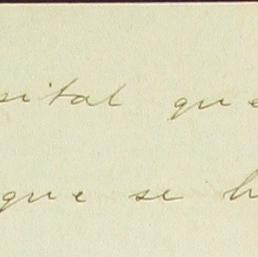 sital que
que se h